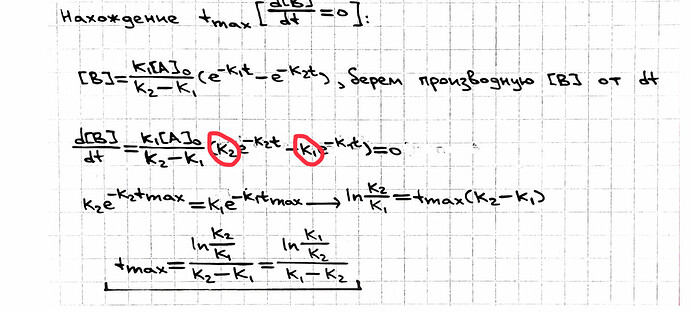 Нахождение t_max [d[B]/dt = 0]:
[B] = K₁[A]₀/(K₂-K₁) (e^(-K₁t) - e^(-K₂t)), берем производную [B] от dt
d[B]/dt = K₁[A]₀/(K₂-K₁) (K₂e^(-K₂t) - K₁e^(-K₁t)) = 0
K₂e^(-K₂tmax) = K₁e^(-K₁tmax) → ln K₂/K₁ = tmax(K₂-K₁)
tmax = (ln K₂/K₁)/(K₂-K₁) = (ln K₁/K₂)/(K₁-K₂)